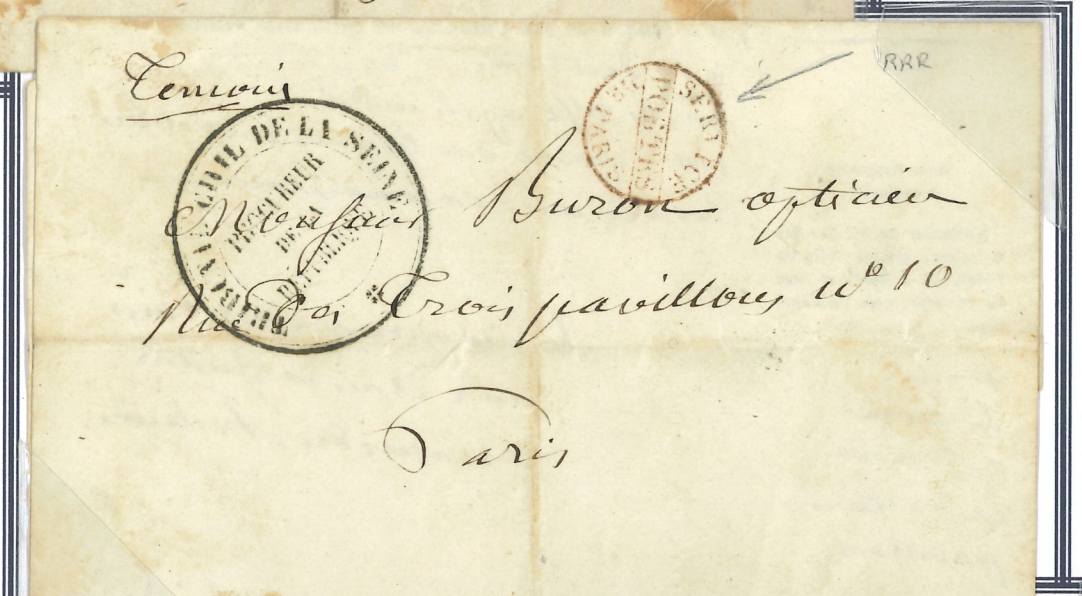 Temoin
RRR
TRIBUNAL CIVIL DE LA SEINE
PROCUREUR
DE LA
RÉPUBLIQUE
SERVICE DE PARIS
Monsieur Buron opticien
Rue Des Trois pavillons n° 10
Paris